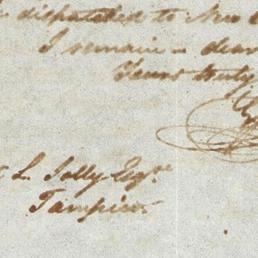 dispatched to New
I remain - dear
Yours truly
L. Jolly Esqre
Tampico.